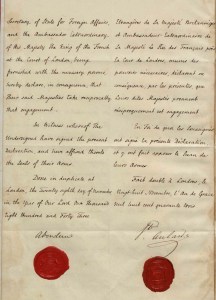 Secretary of State for Foreign Affairs,
and the Ambassador Extraordinary
of His Majesty the King of the French
at the Court of London, being
furnished with the necessary powers
hereby declare, in consequence, that
Their said Majesties take reciprocally
that engagement.
In Witness whereof the
Undersigned have signed the present
Declaration, and have affixed thereto
the Seals of their Arms.
Done in duplicate at
London, the twenty eighth day of November
in the Year of Our Lord One thousand
Eight Hundred and Forty Three
Aberdeen
Etrangères de Sa Majesté Britannique
et l'Ambassadeur Extraordinaire de
Sa Majesté le Roi des Français près
la Cour de Londres, munis des
pouvoirs nécessaires déclarent en
conséquence, par les présentes, que
Leurs dites Majestés prennent
réciproquement cet engagement.
En foi de quoi les Soussignés
ont signé la présente Déclaration
et y ont fait apposer le Sceau de
leurs Armes
Fait double à Londres, le
Vingt huit Novembre, l'An de Grâce
mil huit cent quarante trois